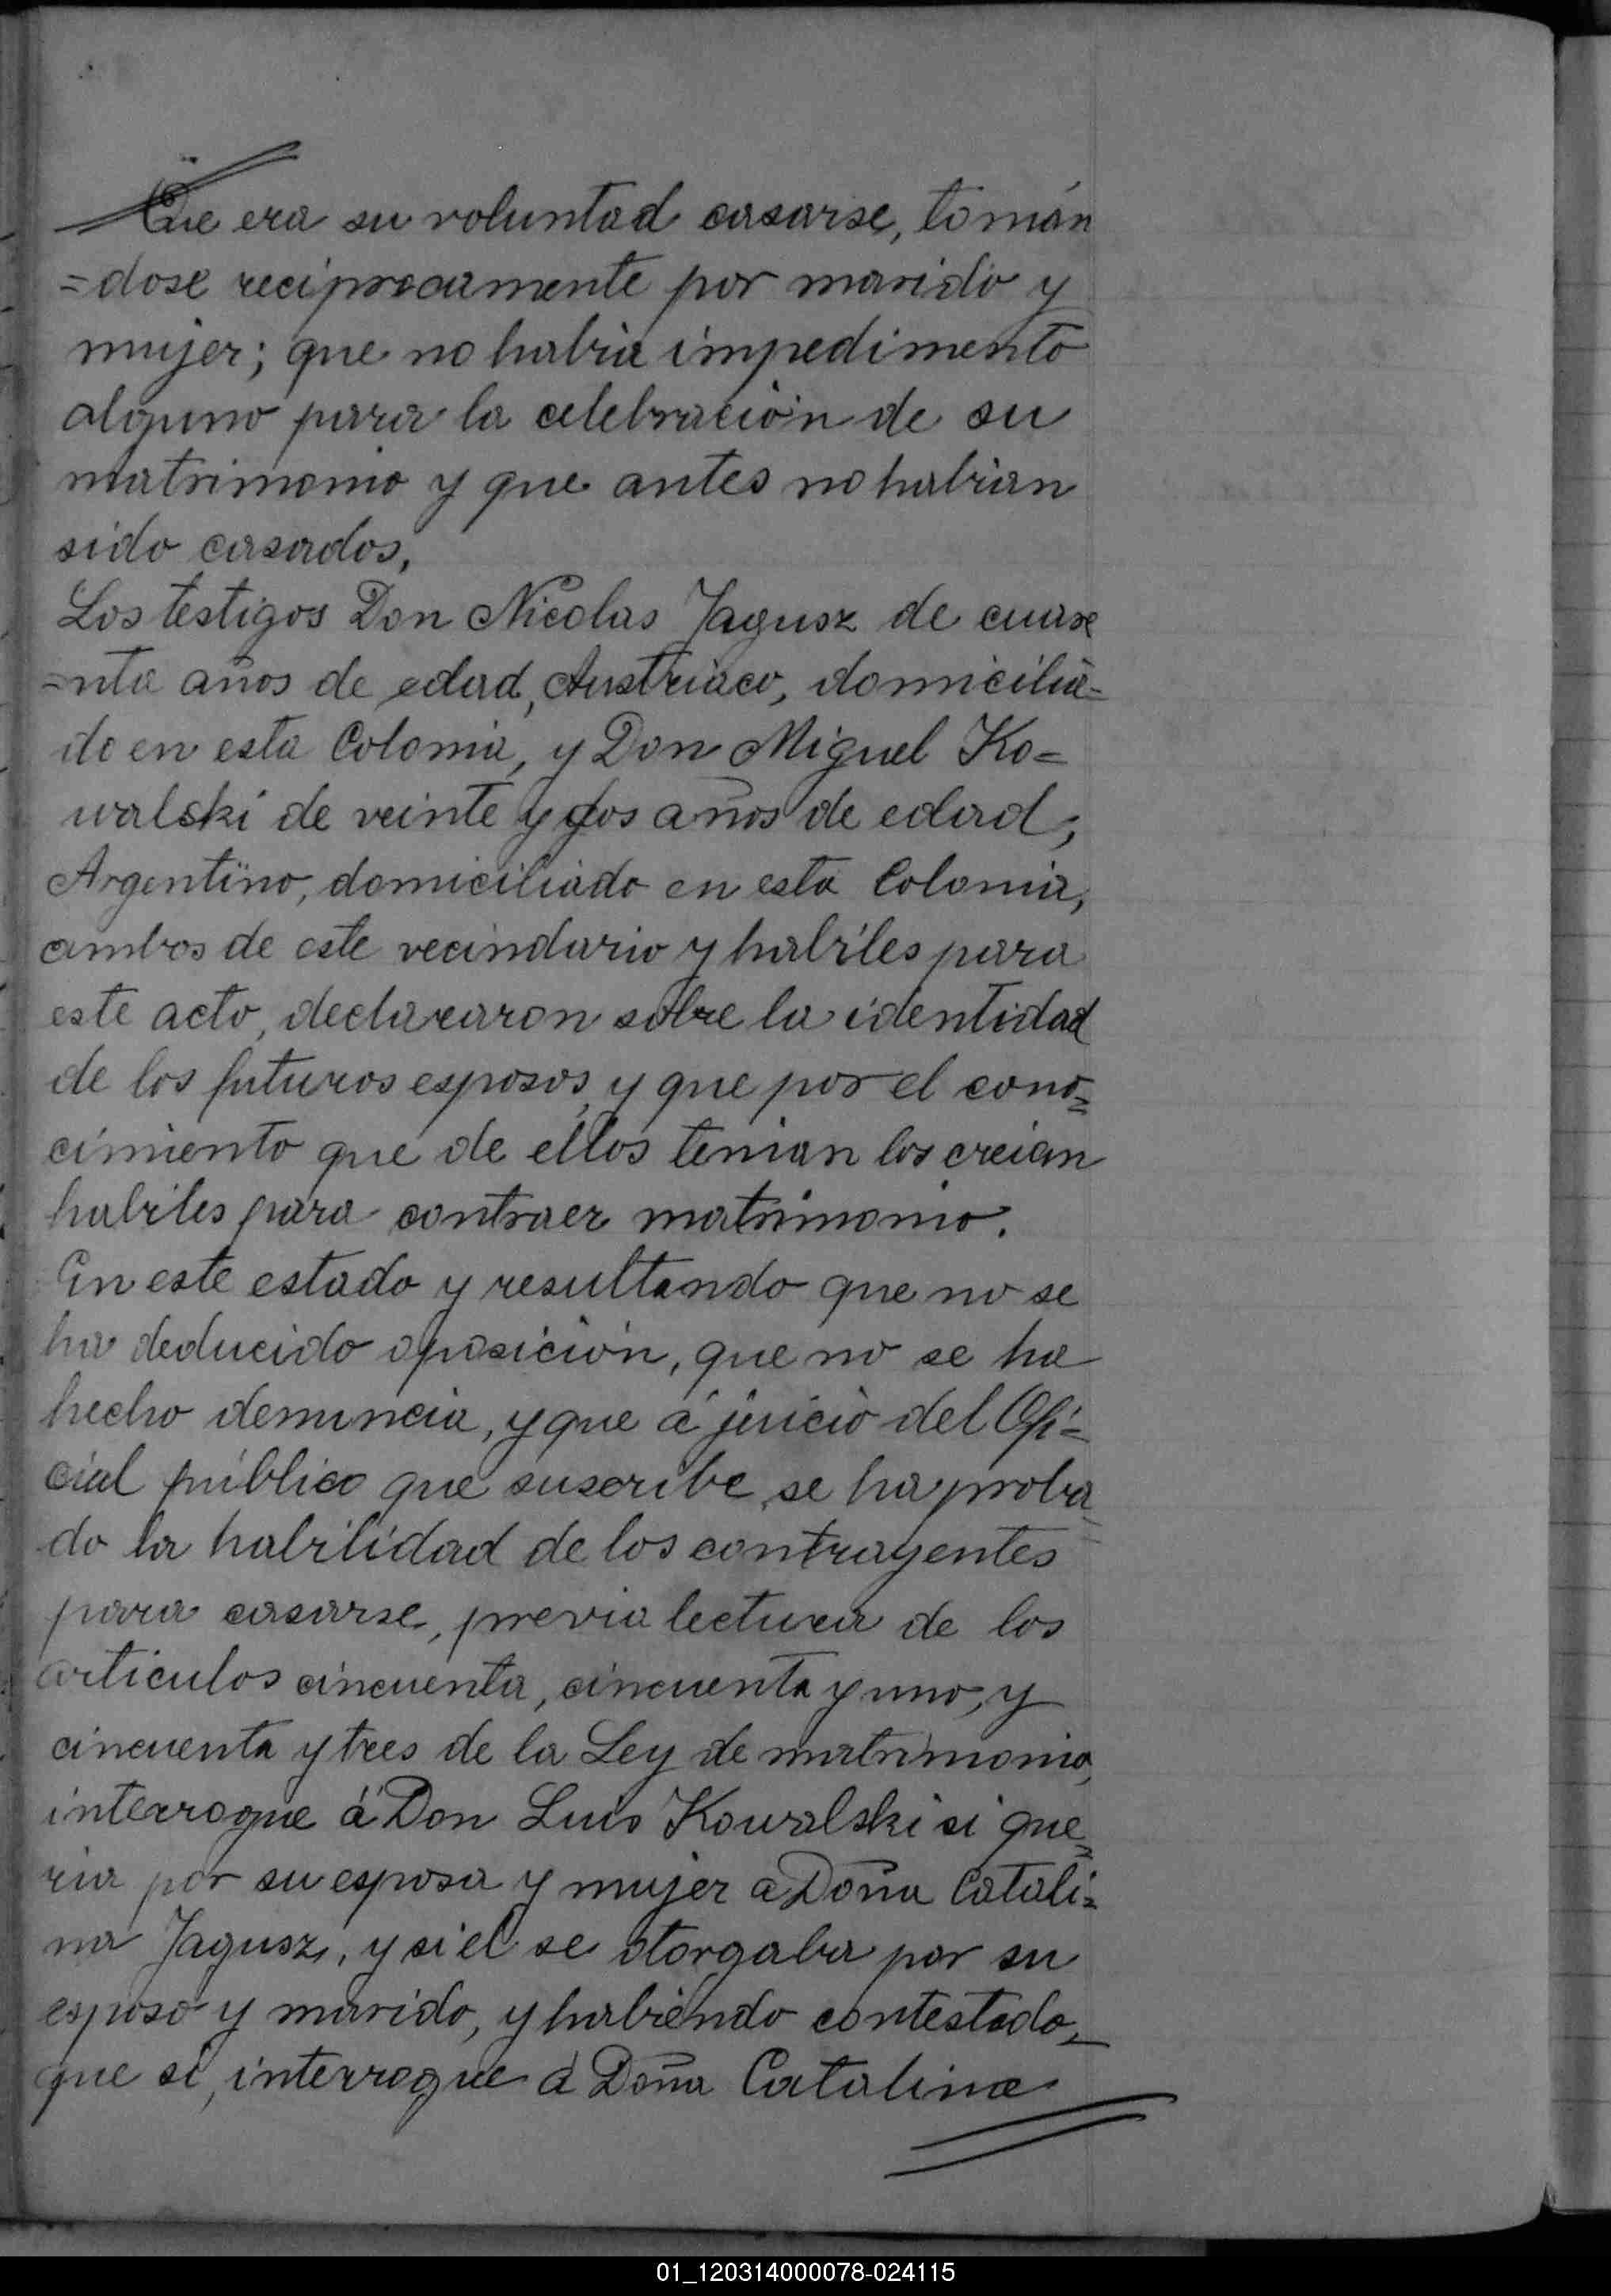 Que era su voluntad casarse, tomán
=dose reciprocamente por marido y
mujer; que no habia impedimento
alguno para la celebración de su
matrimonio y que antes no habian
sido casados,
Los testigos Don Nicolas Jagusz de cuare
=nta años de edad, Austriaco, domicilia=
do en esta Colonia, y Don Miguel Ko=
walski de veinte y dos años de edad,
Argentino, domiciliado en esta Colonia,
ambos de este vecindario y habiles para
este acto, declararon sobre la identidad
de los futuros esposos, y que por el cono=
cimiento que de ellos tenian los creian
habiles para contraer matrimonio.
En este estado y resultando que no se
ha deducido oposición, que no se ha
hecho denuncia, y que á juicio del Ofi=
cial público que suscribe, se ha proba=
do la habilidad de los contrayentes
para casarse, previa lectura de los
articulos cincuenta, cincuenta y uno, y
cincuenta y tres de la Ley de matrimonio,
interrogue á Don Luis Kowalski si que=
ria por su esposa y mujer a Doña Catali=
na Jagusz, y si el se otorgaba por su
esposo y marido, y habiendo contestado,
que si, interrogue á Doña Catalina
01_120314000078-024115